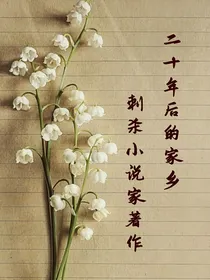 二十年后的家乡
刺杀小说家著作